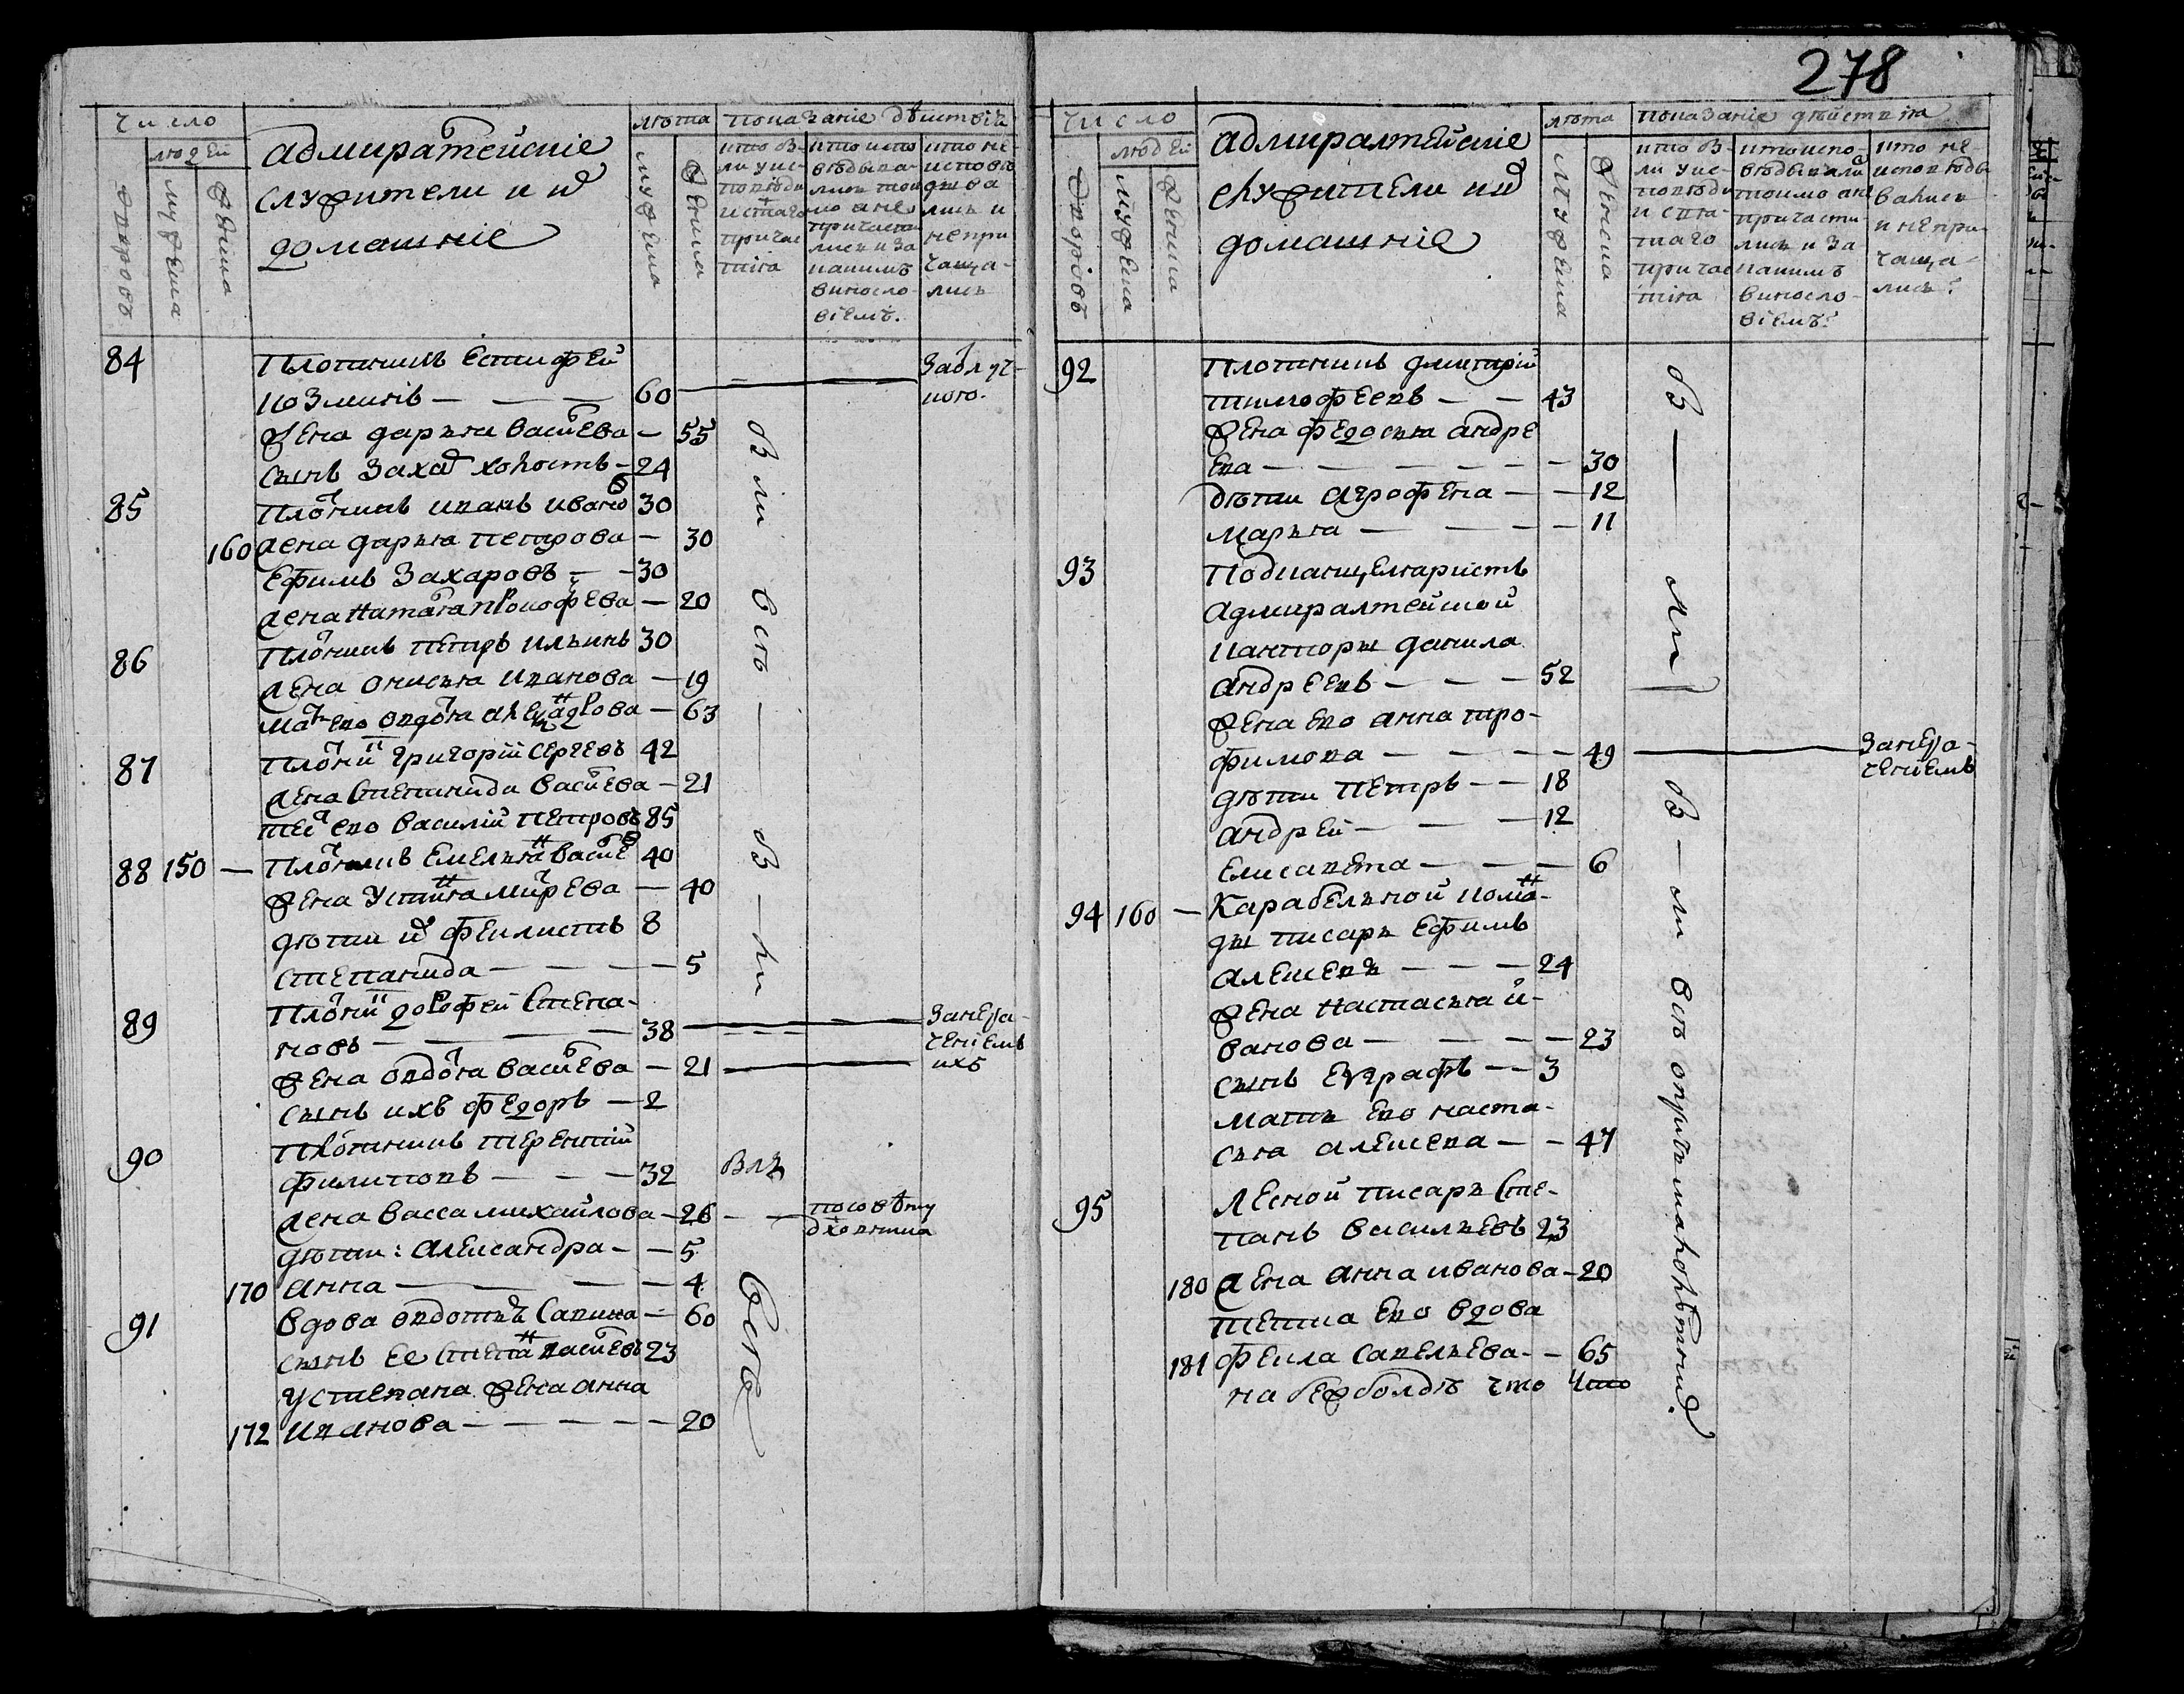 278
число
людей
дворовъ
мужеска
женска
адмиратейскіе
служители и их
домашніе
лѣта
мужеска
женска
показаніе дѣиствія
кто б-
ли у ис-
повѣди
и стаго
причас
тия
кто испо
вѣдыва-
лись ток
мо а не
причаща
лись и за
какимъ
виносло-
віемъ.
кто не-
исповѣ
дыва
лись и
не при
чаща-
лись
84
Плотникъ Естифей
Козминъ — — — 60
За отлуч-
кою.
жена дарья василева — 55
сынъ Захар холостъ — 24
85
плотникъ иванъ иванов 30
160 жена дарья петрова — 30
Ефимъ Захаровъ — — 30
жена наталья прокофева — 20
86
плотникъ петръ ильинъ 30
жена онисья иванова — 19
мать ево вдова александрова — 63
87
плотник григорій сергеевъ 42
жена степанида василева — 21
тесть ево василій петровъ 85
88 150 — плотникъ Емельян василев 40
жена устинья мирева — 40
дѣти их феклистъ 8
степанида — — — — 5
89
плотник дорофей степа-
новъ — — — — 38
За нера-
чениемъ
ихъ
жена овдотья василева — 21
сынъ ихъ федоръ — 2
90
плотникъ терентій
филиповъ — — — 32
былъ
жена васса михаилова — 26 — —
посовѣту
дховника
дѣти: александра — — 5
170 анна — — — — 4
91
вдова овдотья савина — 60
сынъ ее степан василев 23
у степана жена анна
172 иванова — — — — — 20
б ли всѣ — б — ли всѣ
число
людей
дворовъ
мужеска
женска
адмиралтейскіе
служители и их
домашніе
лѣта
мужеска
женска
показаніе дѣиствія
кто б-
ли у ис-
повѣди
и свя-
таго
причас
тия
кто испо-
вѣдывали
токмо а не
причасти-
лись и за
какимъ
виносло-
віемъ:
кто не-
исповѣды
вались
и не при-
чаща-
лись:
92
Плотникъ дмитрій
тимофеевъ — — 43
жена федосья андре
ева — — — — — — 30
дѣти агрофена — — 12
марья — — — — 11
93
Подканцеляристъ
адмиралтейской
канторы данила
андреевъ — — — 52
жена ево анна тро-
фимова — — — — 49
За нера-
чениемъ
дѣти петръ — — 18
андрей — — — 12
елисавета — — — 6
94 160 — Карабельной коман-
ды писарь Ефимъ
алексевъ — — — 24
жена настасья и-
ванова — — — — 23
сынъ Евграфъ — — 3
мать ево наста-
сья алексева — — 47
95
Лесной писарь сте-
панъ васильевъ 23
180 жена анна иванова — 20
тетка ево вдова
181 фекла савельева — — 65
б — ли
б — ли всѣ опричь малолѣтнихъ.